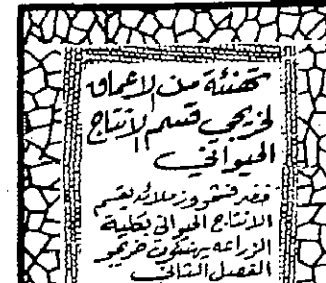 تهنئة من الاعماق
لخريجي قسم الانتاج
الحيواني
خضر وزملائه بقسم
الانتاج الحيواني بكلية
الزراعه يهنئون خريجو
الفصل الثاني